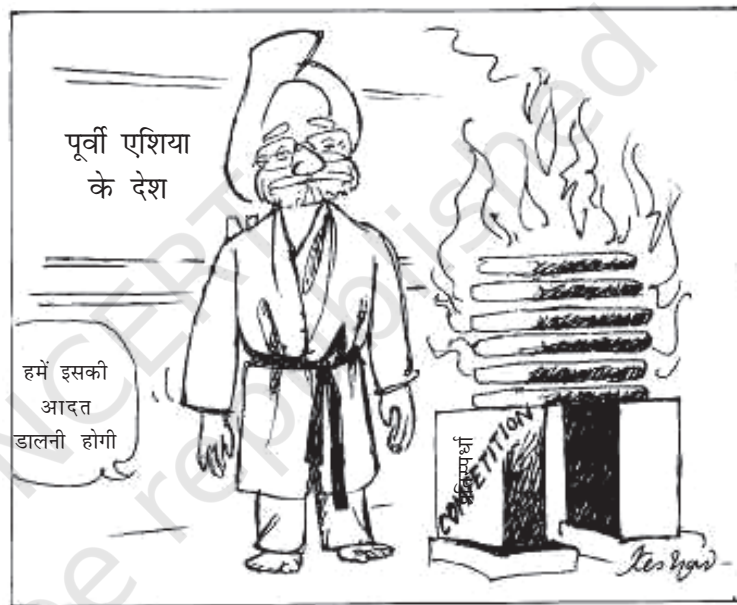 पूर्वी एशिया
के देश
हमें इसकी
आदत
डालनी होगी
प्रतिस्पर्धा
COMPETITION
Keshav